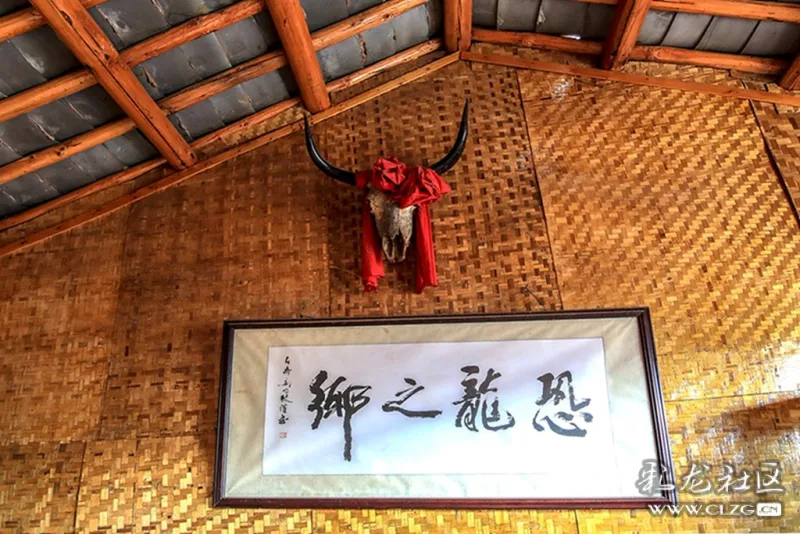 恐龍之鄉
彩龙社区
www.CLZG.CN